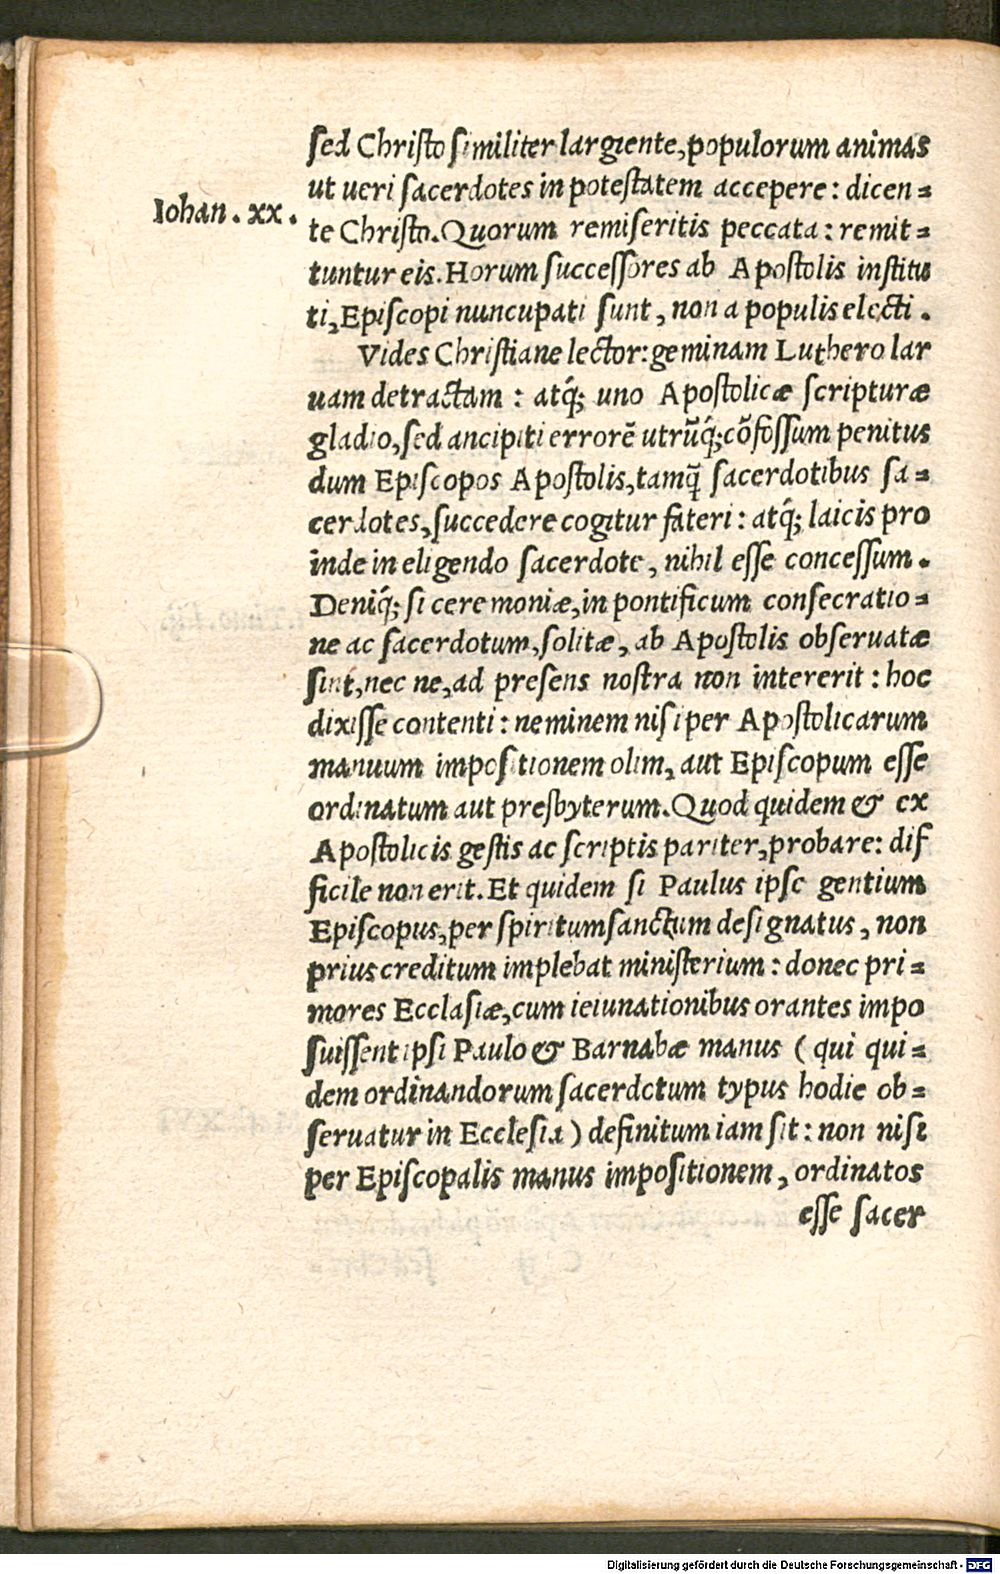 sed Christo similiter largiente, populorum animas
ut ueri sacerdotes in potestatem accepere: dicen=
Iohan. xx.
te Christo. Quorum remiseritis peccata: remit=
tuntur eis. Horum successores ab Apostolis institu
ti, Episcopi nuncupati sunt, non a populis electi.
Vides Christiane lector: geminam Luthero lar
uam detractam: atq́; uno Apostolicæ scripturæ
gladio, sed ancipiti errorē utrūq́; cōfossum penitus
dum Episcopos Apostolis, tamq̃ sacerdotibus sa=
cerdotes, succedere cogitur fateri: atq́; laicis pro
inde in eligendo sacerdote, nihil esse concessum.
Deniq́; si ceremoniæ, in pontificum consecratio=
ne ac sacerdotum, solitæ, ab Apostolis obseruatæ
sint, nec ne, ad presens nostra non intererit: hoc
dixisse contenti: neminem nisi per Apostolicarum
manuum impositionem olim, aut Episcopum esse
ordinatum aut presbyterum. Quod quidem & ex
Apostolicis gestis ac scriptis pariter, probare: dif
ficile non erit. Et quidem si Paulus ipse gentium
Episcopus, per spiritumsanctum designatus, non
prius creditum implebat ministerium: donec pri=
mores Ecclasiæ, cum ieiunationibus orantes impo
suissent ipsi Paulo & Barnabæ manus (qui qui=
dem ordinandorum sacerdotum typus hodie ob=
seruatur in Ecclesia) definitum iam sit: non nisi
per Episcopalis manus impositionem, ordinatos
esse sacer
Digitalisierung gefördert durch die Deutsche Forschungsgemeinschaft - DFG